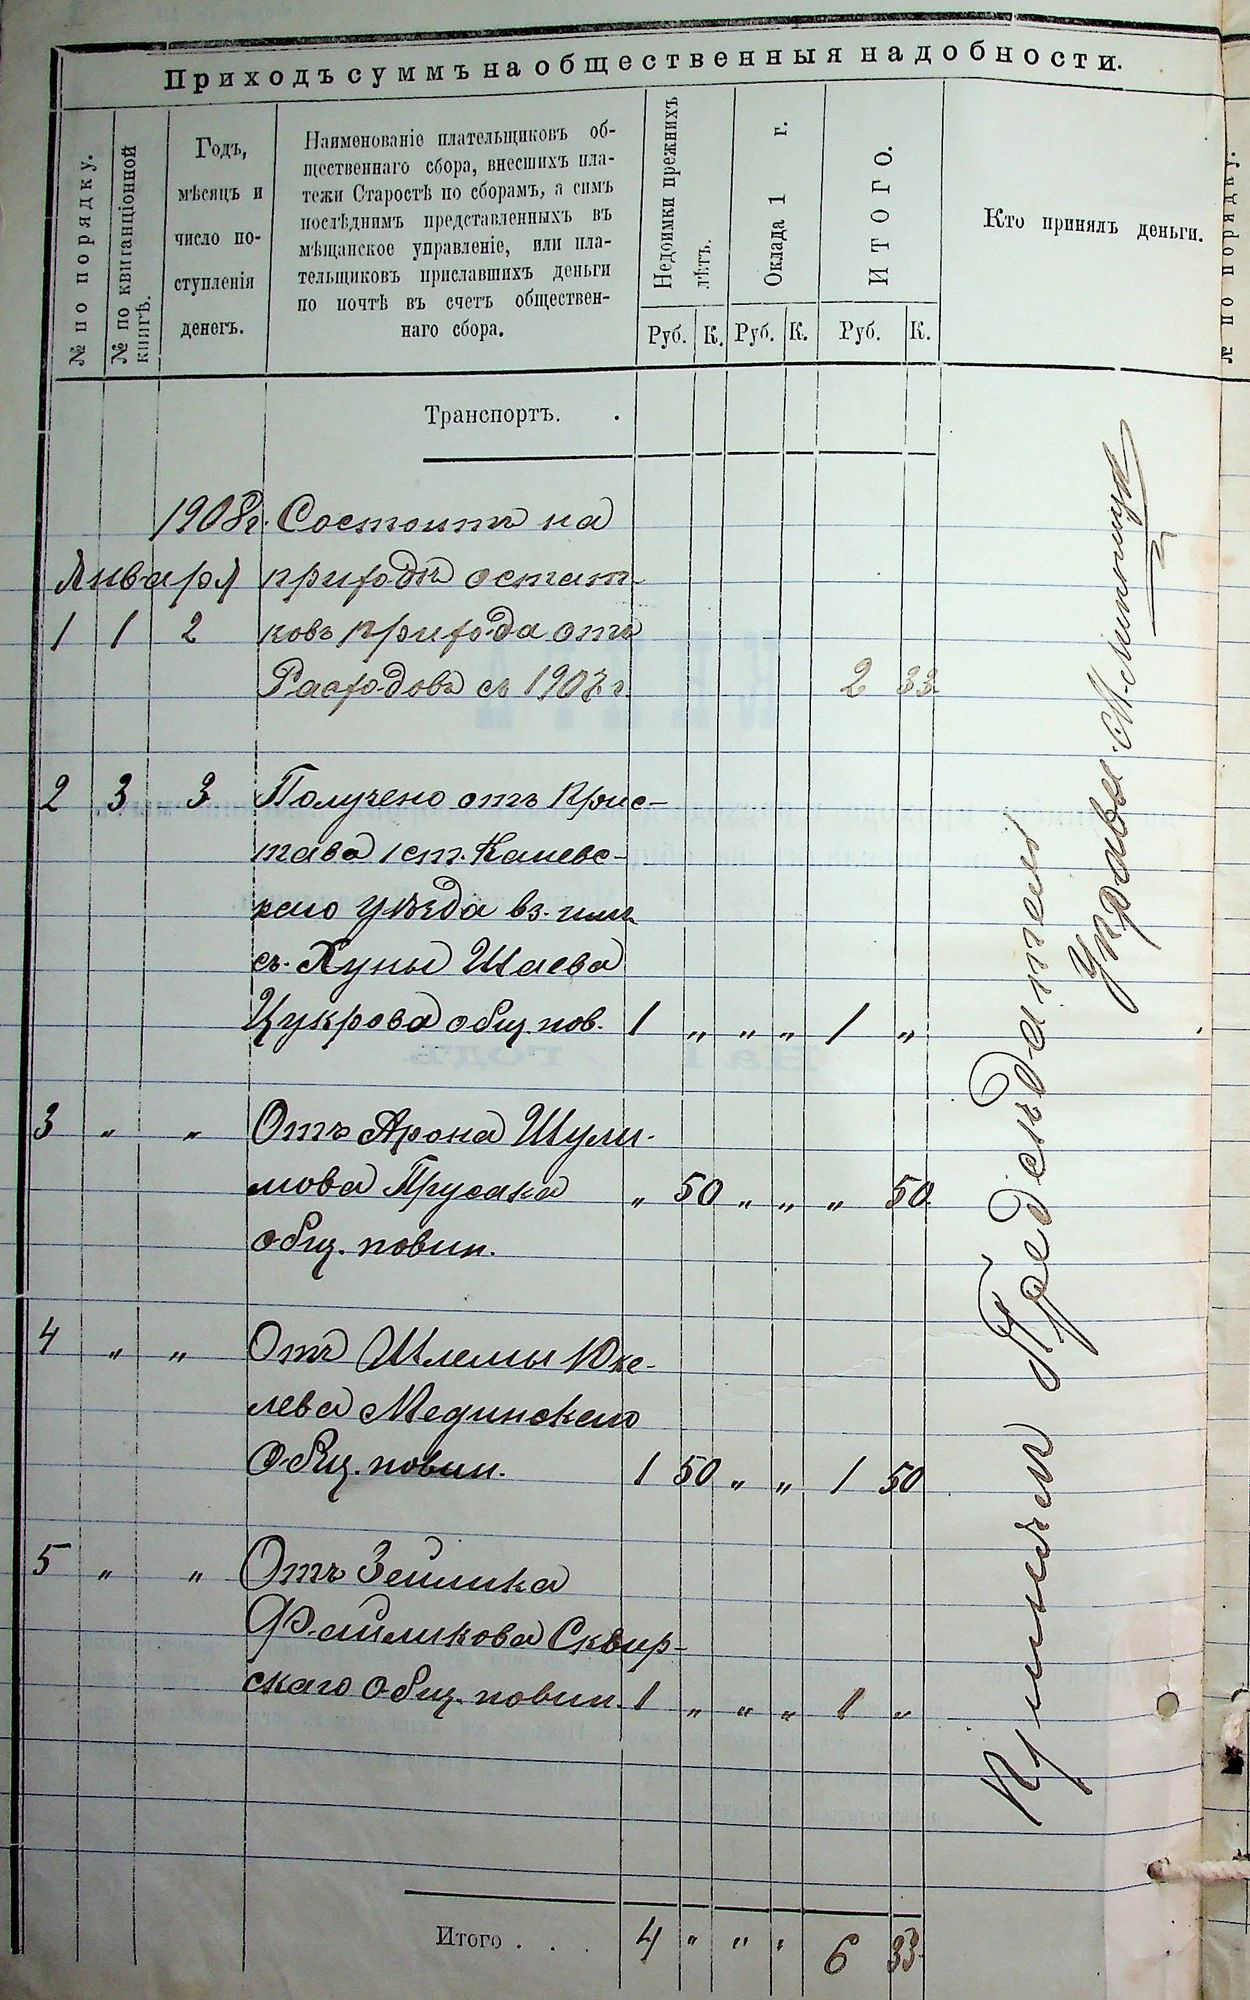 Приходъ суммъ на общественныя надобности.
№ по порядку.
№ по квитанціонной
книгѣ.
Годъ,
мѣсяцъ и
число по-
ступленія
денегъ.
Наименованіе плательщиковъ об-
щественнаго сбора, внесшихъ пла-
тежи Старостѣ по сборамъ, а симъ
послѣднимъ представленныхъ въ
мѣщанское управленіе, или пла-
тельщиковъ приславшихъ деньги
по почтѣ въ счетъ обществен-
наго сбора.
Недоимки прежнихъ
лѣтъ.
Оклада 1 г.
ИТОГО.
Кто принялъ деньги.
№ по порядку.
Руб. К. Руб. К. Руб. К.
Транспортъ. .
1908г. Состоитъ на
Января приходѣ остат
1 1 2 ковъ прихода отъ
Расходовъ съ 1907 г. 2 33
2 3 3 Получено отъ Прис-
тава 1 ст. Каневс-
каго уѣзда вз.
съ Хуны Шаева
Цукрова общ. пов. 1 „ „ „ 1 „
3 „ „ Отъ Арона Шули-
мова Прусака „ 50 „ „ „ 50
общ. повин.
4 „ „ Отъ Шлемы Юке-
лева Мединскаго
общ. повин. 1 50 „ „ 1 50
5 „ „ Отъ Зейлика
Файликова Сквир-
скаго общ. повин. 1 „ „ „ 1 „
Итого . . . 4 „ „ „ 6 33
Принялъ Предсѣдатель
Управы